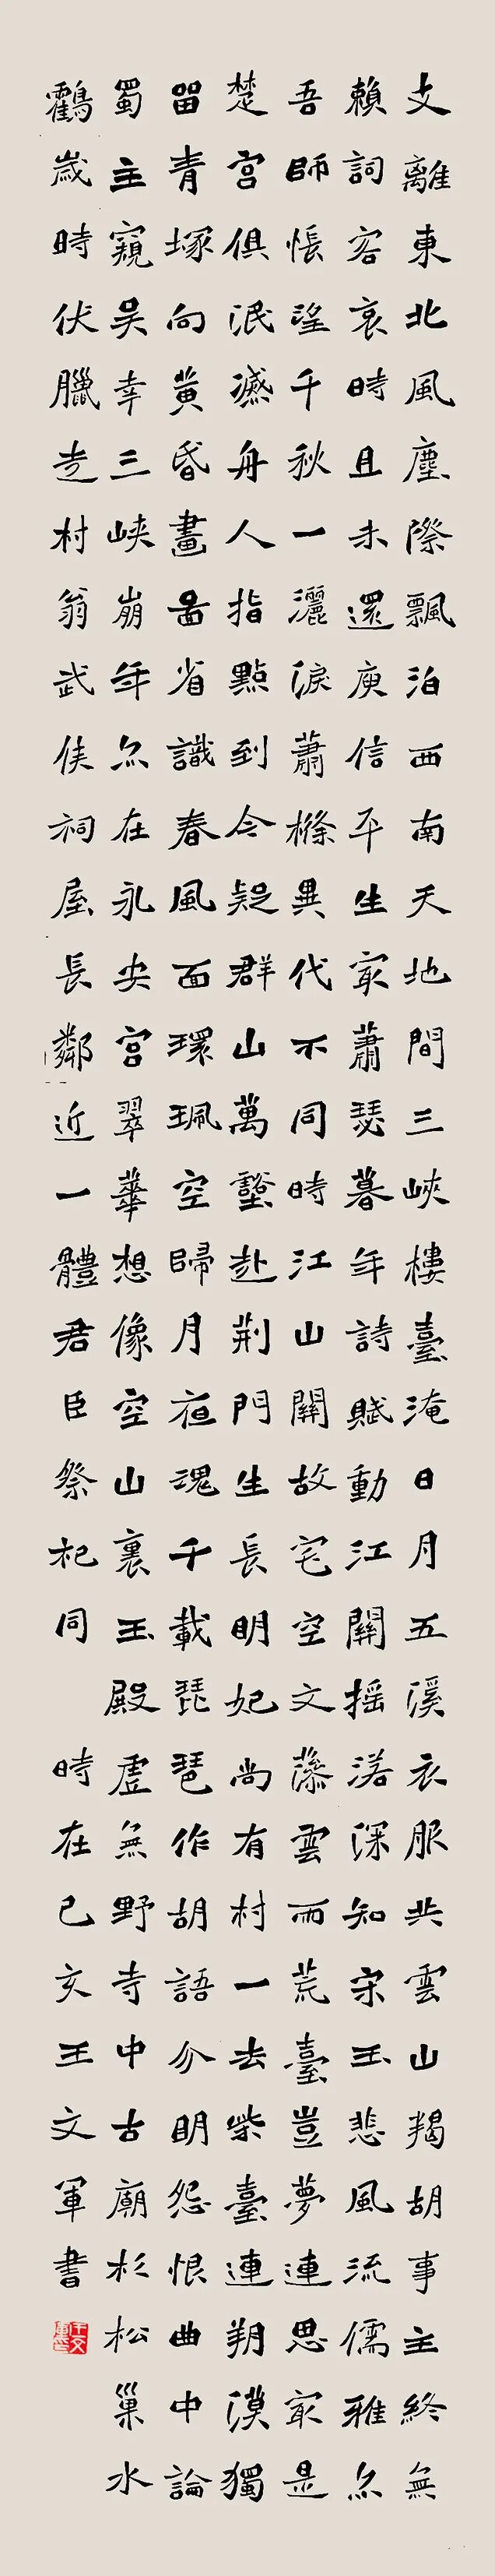 支離東北風塵際飄泊西南天地間三峽樓臺淹日月五溪衣服共雲山羯胡事主終無
賴詞客哀時且未還庾信平生最蕭瑟暮年詩賦動江關摇落深知宋玉悲風流儒雅亦
吾師悵望千秋一灑淚蕭條異代不同時江山關故宅空文藻雲雨荒臺豈夢連思最是
楚宮俱泯滅舟人指點到今疑群山萬壑赴荆門生長明妃尚有村一去紫臺連朔漠獨
留青塚向黄昏畫圖省識春風面環珮空歸月夜魂千載琵琶作胡語分明怨恨曲中論
蜀主窺吴幸三峽崩年亦在永安宮翠華想像空山裏玉殿虛無野寺中古廟杉松巢水
鸛歲時伏臘走村翁武侯祠屋長鄰近一體君臣祭祀同 時在己亥王文軍書